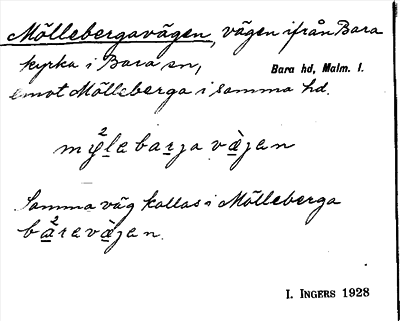 Möllebergavägen, vägen ifrån Bara
kyrka i Bara sn,
Bara hd, Malm. l.
emot Mölleberga i samma hd.
Samma väg kallas i Mölleberga
I. INGERS 1928